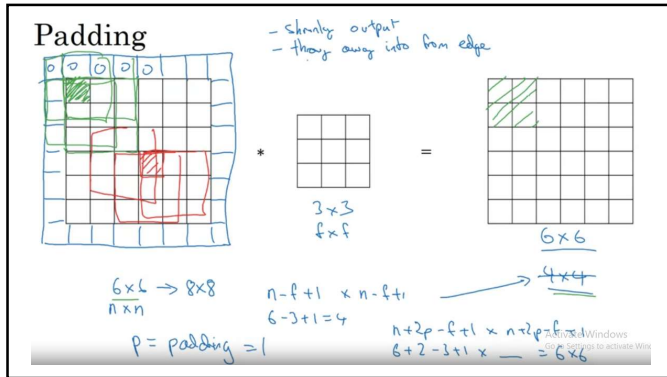 Padding
- shrinky output
- throw away info from edge
0 0 0 0 0
*
=
3 × 3
f × f
6 × 6
4 × 4
6 × 6 → 8 × 8
n × n
n-f+1 × n-f+1
6-3+1=4
p = padding = 1
n+2p-f+1 × n+2p-f+1
6+2-3+1 × __ = 6×6
Activate Windows
Go to Settings to activate Win